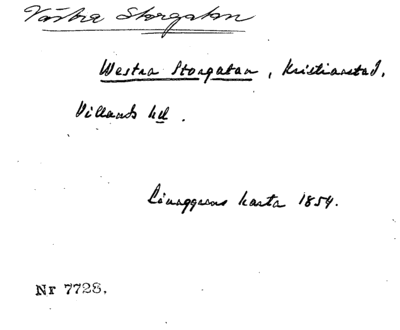 Västra Storgatan
Westra Storgatan, Kristianstad.
Villands hd.
Ljunggrens karta 1854.
Nr 7728.